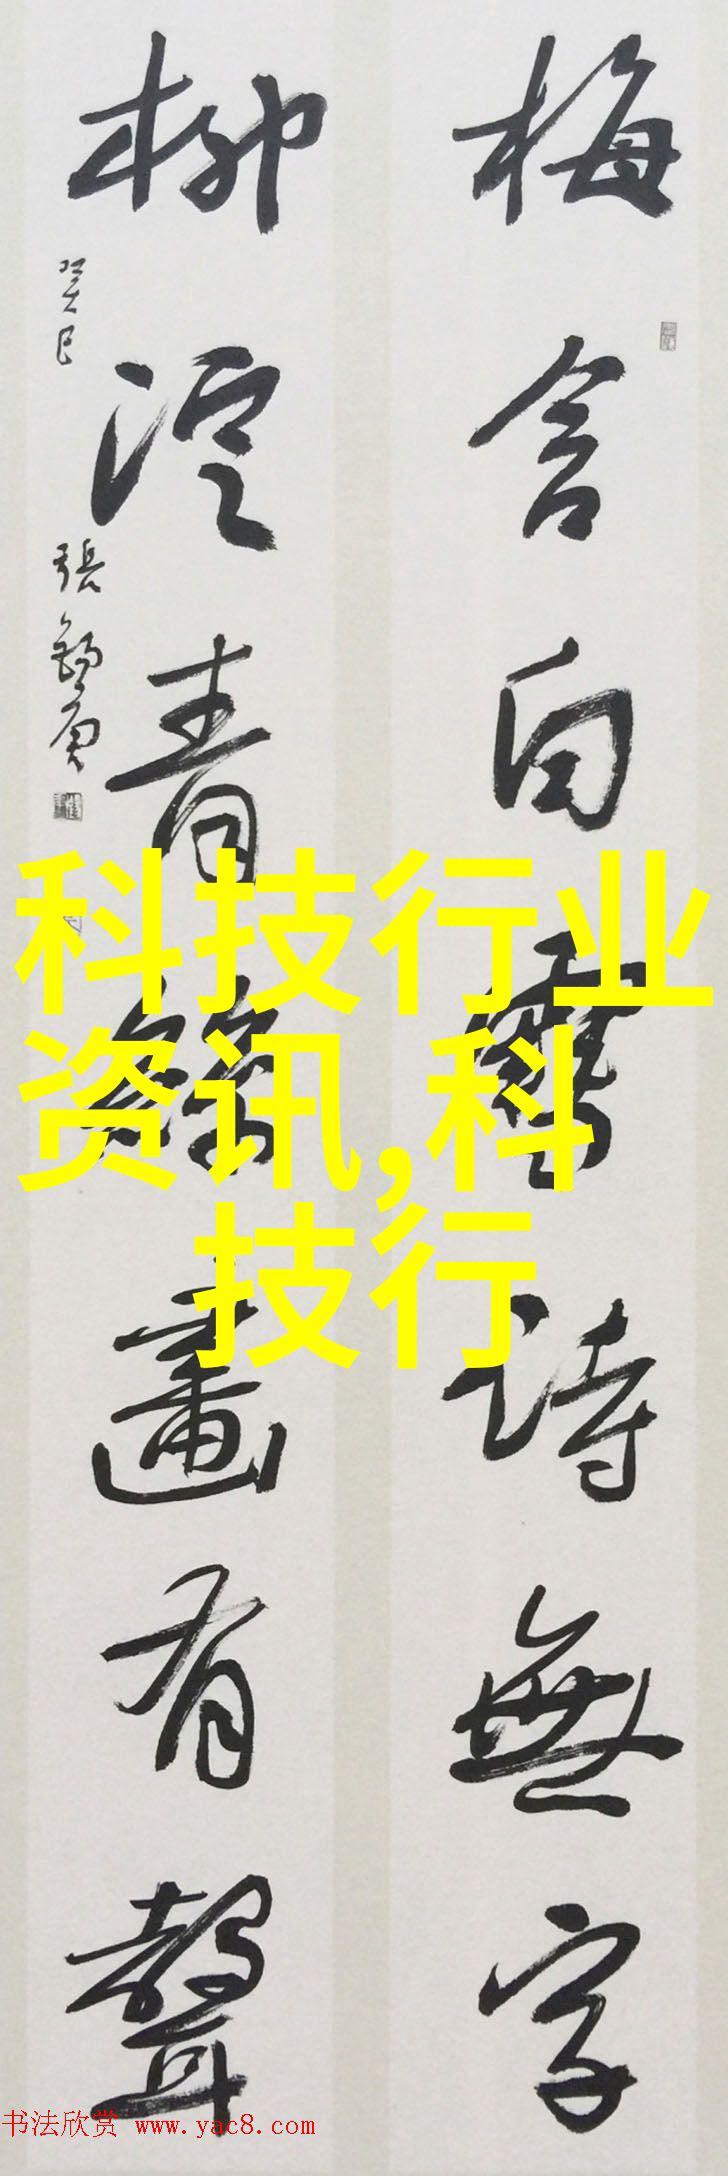 梅含白雪詩無字
柳浥青綠畫有聲
癸巳
張
科技行业
资讯,科
技行
书法欣赏 www.yac8.com